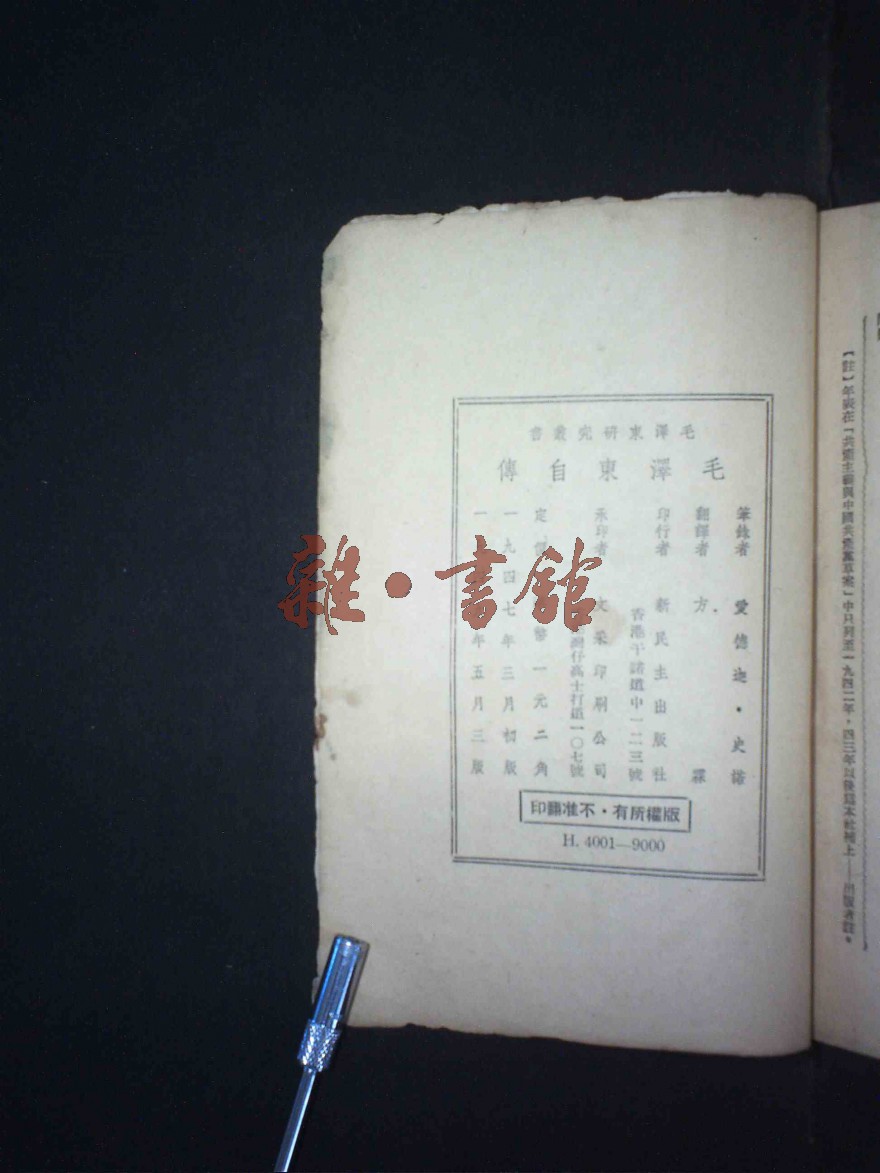 毛澤東研究叢書
毛澤東自傳
筆錄者 愛德迦・史諾
翻譯者 方霖
印行者 新民主出版社
香港干諾道中一二三號
承印者 文采印刷公司
灣仔高士打道一〇七號
定 幣一元二角
一九四七年三月初版
一 年五月三版
版權所有・不准翻印
H. 4001—9000
雜・書館
【註】年表在「共產主義與中國共產黨草案」中只列至一九四二年,四三年以後為本社補上——出版者註。